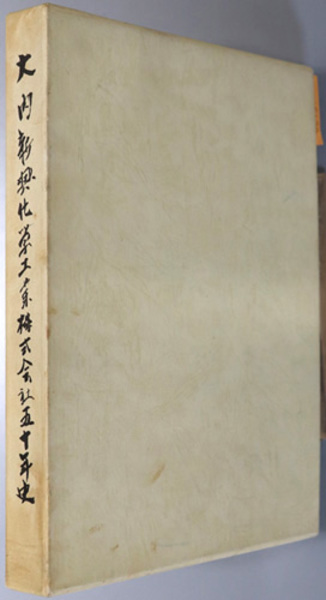 大内新興化学工業株式会社五十年史